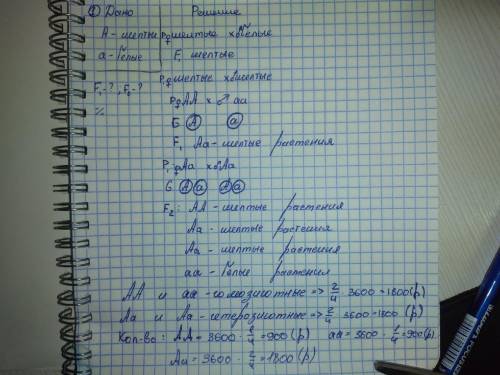 ① Дано Решение
А - желтые P ♀ желтые x ♂ белые
а - белые F₁ желтые
F₁ - ?, F₂ - ? P ♀ желтые x ♂ желтые
% P ♀ АА x ♂ аа
G Ⓐ ⓐ
F₁ Аа - желтые растения
P₁ ♀ Аа x ♂ Аа
G Ⓐ ⓐ Ⓐ ⓐ
F₂: АА - желтые растения
Аа - желтые растения
Аа - желтые растения
аа - белые растения
АА и аа - гомозиготные => 2/4 3600 = 1800 (р)
Аа и Аа - гетерозиготные => 2/4 3600 = 1800 (р)
Кол-во: АА = 3600 · 1/4 = 900 (р) аа = 3600 · 1/4 = 900 (р)
Аа = 3600 · 2/4 = 1800 (р)